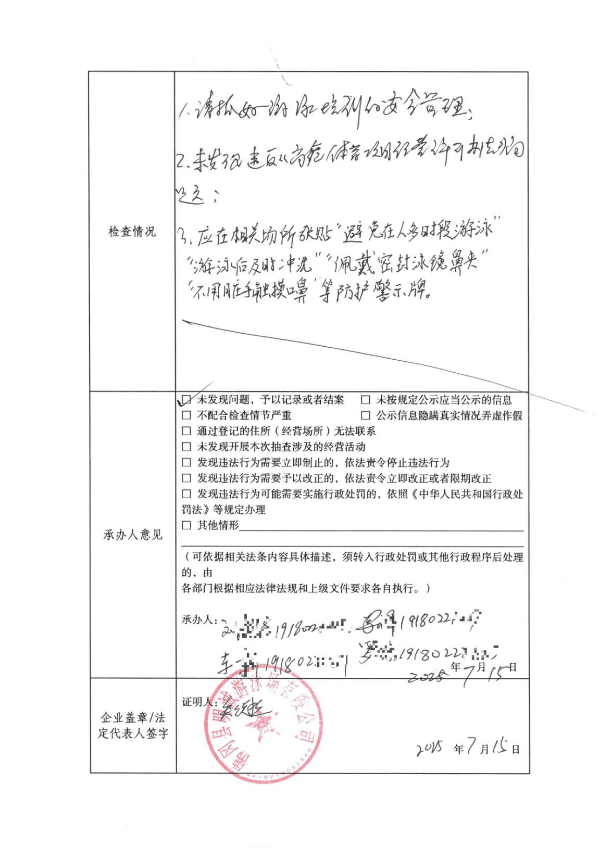 检查情况
1.请抓好游泳培训的安全管理;
2.未发现违反《高危体育项目经营许可办法》的问
题;
3.应在相关场所张贴"避免在人多时段游泳"
"游泳后及时冲洗""佩戴密封泳镜鼻夹"
"不用脏手触摸口鼻"等防护警示牌。
承办人意见
☑ 未发现问题，予以记录或者结案 □ 未按规定公示应当公示的信息
□ 不配合检查情节严重 □ 公示信息隐瞒真实情况弄虚作假
□ 通过登记的住所（经营场所）无法联系
□ 未发现开展本次抽查涉及的经营活动
□ 发现违法行为需要立即制止的，依法责令停止违法行为
□ 发现违法行为需要予以改正的，依法责令立即改正或者限期改正
□ 发现违法行为可能需要实施行政处罚的，依照《中华人民共和国行政处
罚法》等规定办理
□ 其他情形
（可依据相关法条内容具体描述，须转入行政处罚或其他行政程序后处理
的，由
各部门根据相应法律法规和上级文件要求各自执行。）
承办人: 1918022 1918022
191802 1918022
2025年7月15日
企业盖章/法
定代表人签字
证明人:
佛冈县 游泳场有限公司
2025 年7月15日